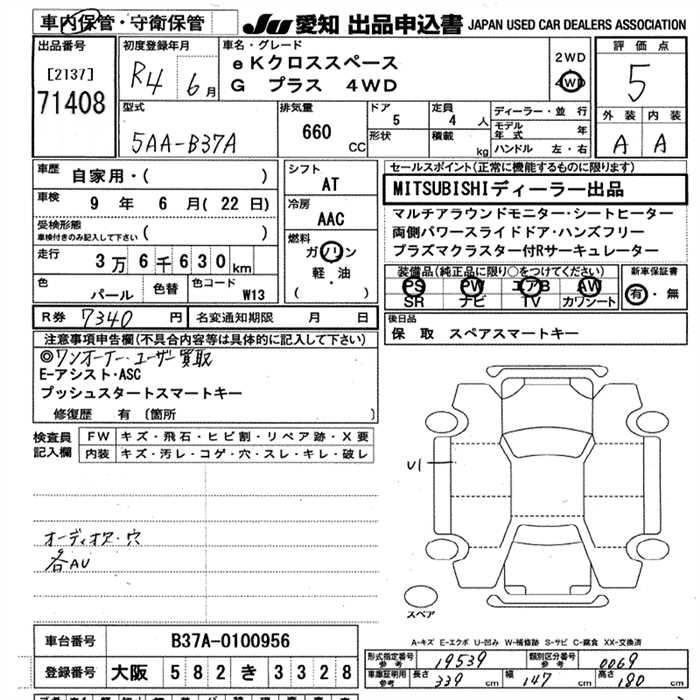 車内保管・守衛保管
JU 愛知 出品申込書 JAPAN USED CAR DEALERS ASSOCIATION
出品番号
[2137]
71408
初度登録年月
R4 6月
車名・グレード
eKクロススペース
G プラス 4WD
2WD
4WD
評価点
5
外装 内装
A A
型式
5AA-B37A
排気量
660 CC
ドア 5
形状
定員 4 人
積載 kg
ディーラー・並行
モデル年式 年
ハンドル 左・右
車歴 自家用・( )
車検 9 年 6 月 ( 22 日)
受検形態
車検付きのみ記入して下さい ( )
走行 3万6千630km
色 パール 色替 色コード W13
シフト
AT
冷房
AAC
燃料
ガソリン
軽・油
( )
セールスポイント(正常に機能するものに限ります)
MITSUBISHIディーラー出品
マルチアラウンドモニター・シートヒーター
両側パワースライドドア・ハンズフリー
プラズマクラスター付Rサーキュレーター
装備品(純正品に限り○をつけてください)
PS PW エアB AW
SR ナビ TV カワシート
新車保証書
有・無
R券 7340 円 名変通知期限 月 日
後日品
保 取 スペアスマートキー
注意事項申告欄(不具合内容等は具体的に記入して下さい)
◎ワンオーナー・ユーザー買取
E-アシスト・ASC
プッシュスタートスマートキー
修復歴 有 〔箇所 〕
検査員記入欄
FW キズ・飛石・ヒビ割・リペア跡・X要
内装 キズ・汚レ・コゲ・穴・スレ・キレ・破レ
U1
オーディオ穴
各AU
スペア
車台番号 B37A-0100956
登録番号 大阪 582 き 3328
A-キズ E-エクボ U-凹み W-補修跡 S-サビ C-腐食 XX-交換済
形式指定番号 参考 19539 類別区分番号 参考 0069
車庫証明用 参考 長さ 339 cm 幅 147 cm 高さ 180 cm